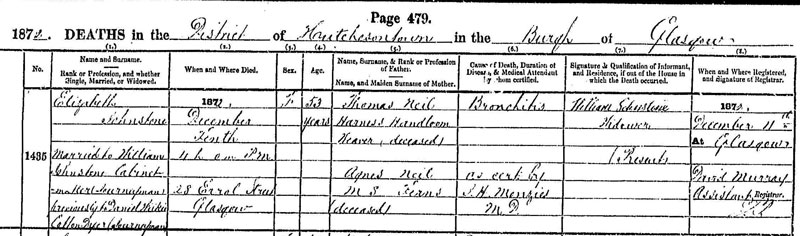 Page 479.
1872. DEATHS in the District of Hutchesontown in the Burgh of Glasgow
(1.) (2.) (3.) (4.) (5.) (6.) (7.) (8.)
No. Name and Surname. Rank or Profession, and whether Single, Married, or Widowed. When and Where Died. Sex. Age. Name, Surname, & Rank or Profession of Father. Name, and Maiden Surname of Mother. Cause of Death, Duration of Disease, & Medical Attendant by whom certified. Signature & Qualification of Informant, and Residence, if out of the House in which the Death occurred. When and Where Registered, and Signature of Registrar.
Elizabeth 1872, F 53 Thomas Neil Bronchitis William Johnstone 1872,
Johnstone December years Harness Handloom Widower December 11th
Tenth Weaver (deceased) At Glasgow
1435 Married to William 4 h. 0 m. P.M. (Present)
Johnstone Cabinet Agnes Neil as cert by David Murray
maker (Journeyman) 28 Errol Street M.S. Ferns J. H. Menzies Assistant Registrar.
previously to David Glasgow (deceased) M.D.
Cotton Dyer (Journeyman